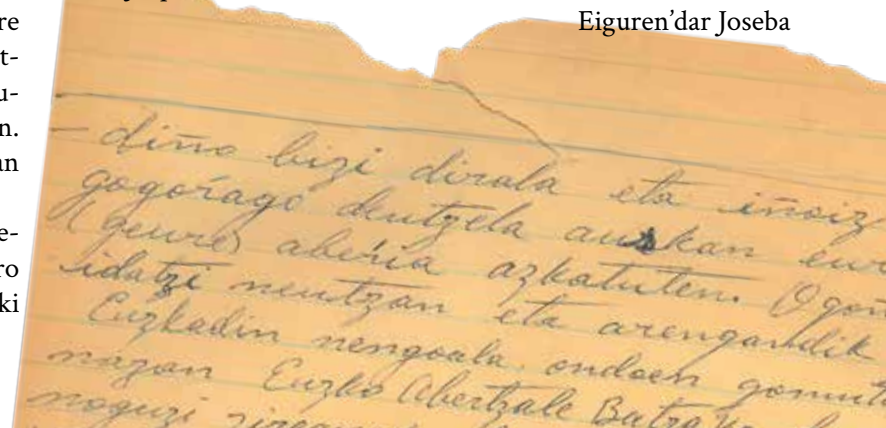 re
t-
u-
n.
an
e-
ro
ki
Eiguren’dar Joseba
- diño bizi dirala eta iñoiz
gogoŕago deutzela auskan eur
(geure) abeŕia azkatuten. Ogoñ
idatzi neutzan eta arengandik
Euzkadin nengoala, ondoen gomuta
nazan Euzko Abertzale Batza
noguzi